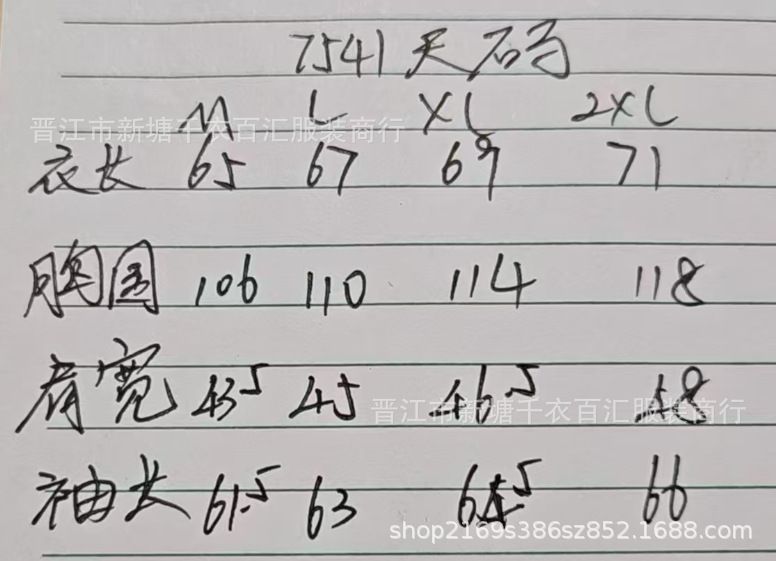 7541 尺码
M L XL 2XL
晋江市新塘千衣百汇服装商行
衣长 65 67 69 71
胸围 106 110 114 118
肩宽 43.5 45 46.5 48
晋江市新塘千衣百汇服装商行
袖长 61.5 63 64.5 66
shop2169s386sz852.1688.com